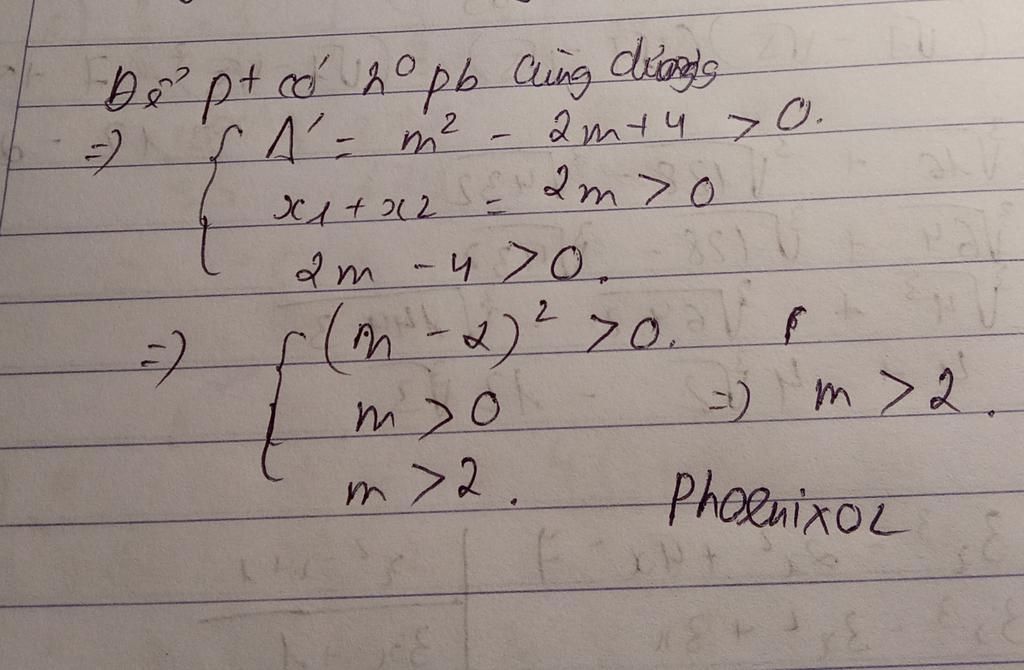 Để pt có n⁰ pb cùng dương
=> { Δ' = m² - 2m + 4 > 0.
x1 + x2 = 2m > 0
2m - 4 > 0.
=> { (m - 2)² > 0.
m > 0 => m > 2.
m > 2.
PhoenixOL